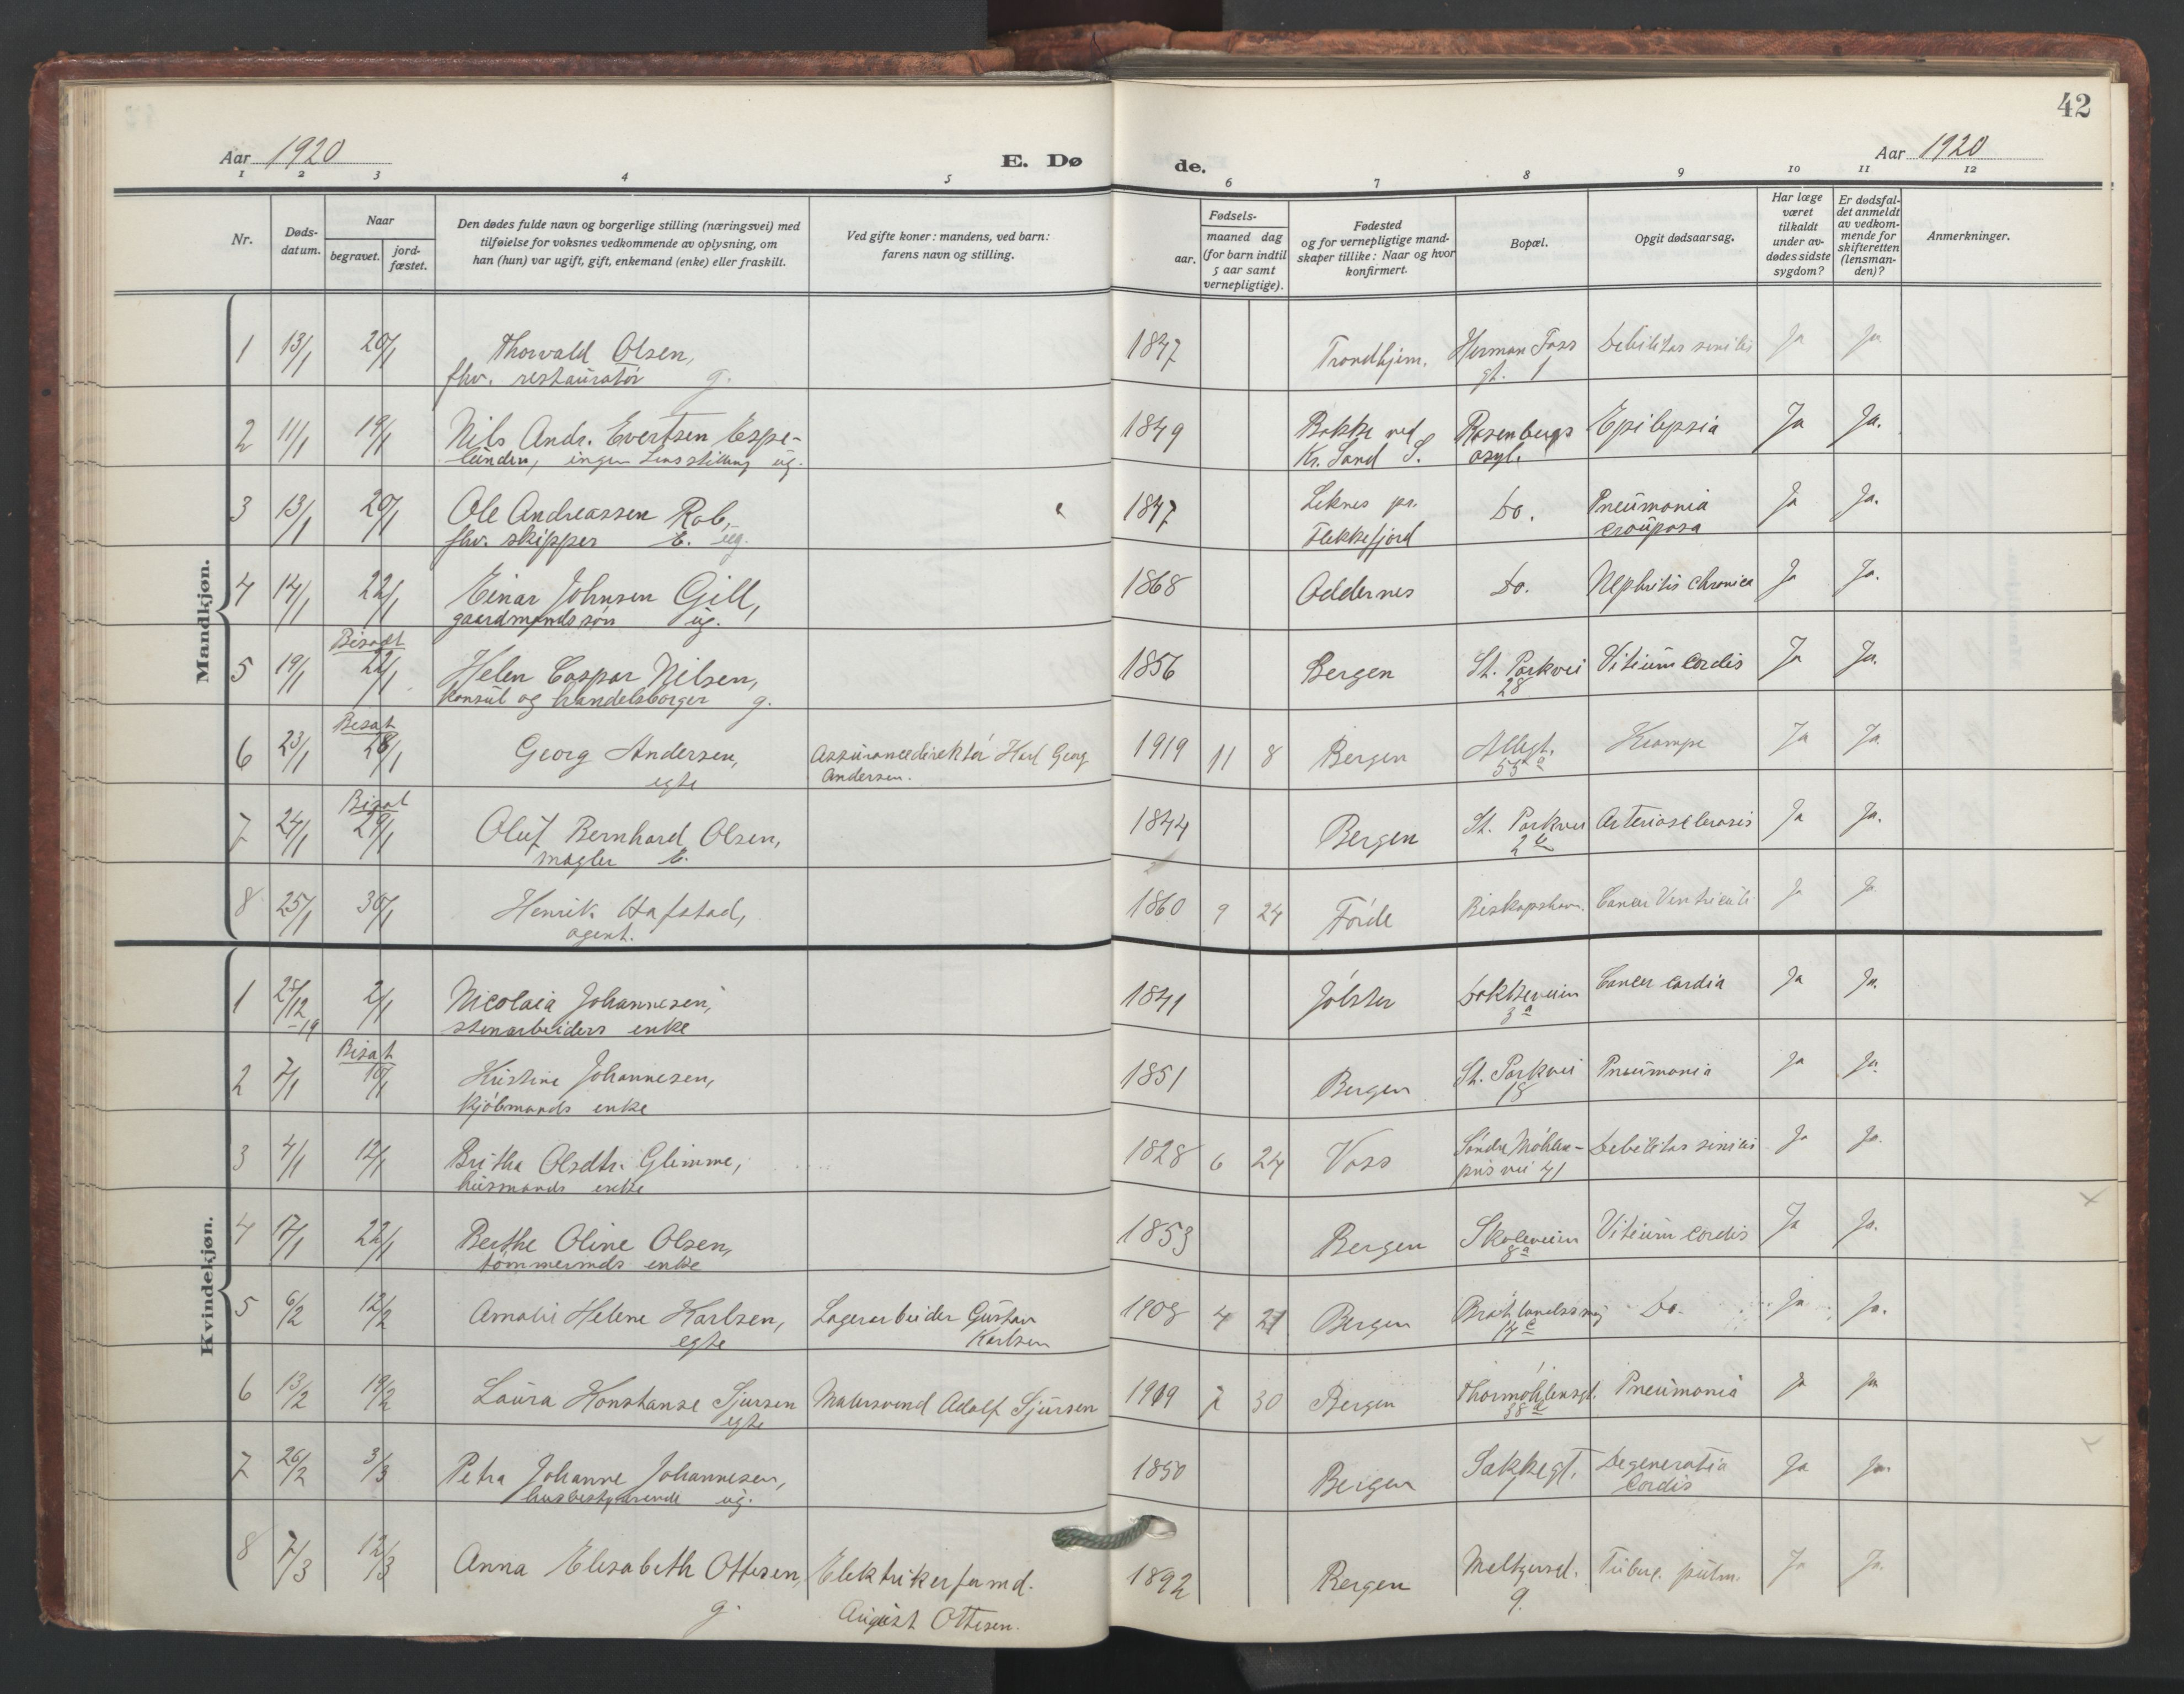 42
Aar 1920
E. Dø
de.
Aar 1920
1 2 3 4 5 6 7 8 9 10 11 12
Nr.
Døds-
datum.
Naar
begravet.
jord-
fæstet.
Den dødes fulde navn og borgerlige stilling (næringsvei) med
tilføielse for voksnes vedkommende av oplysning, om
han (hun) var ugift, gift, enkemand (enke) eller fraskilt.
Ved gifte koner: mandens, ved barn:
farens navn og stilling.
Fødsels-
aar.
maaned dag
(for barn indtil
5 aar samt
vernepligtige).
Fødested
og for vernepligtige mand-
skaper tillike: Naar og hvor
konfirmert.
Bopæl.
Opgit dødsaarsag.
Har læge
været
tilkaldt
under av-
dødes sidste
sygdom?
Er dødsfal-
det anmeldt
av vedkom-
mende for
skifteretten
(lensman-
den)?
Anmerkninger.
Mandkjøn.
1 13/1 20/1 Thorvald Olsen, 1847 Trondhjem. Herman Foss Debilitas senilis Ja Ja
fhv. restauratør g. gt. 1
2 11/1 19/1 Nils Andr. Evertsen Espe- 1849 Bakke ved Rosenbergs Epilepsia Ja Ja.
lunden, ingen Livsstilling ug. Kr. Sand S. asyl.
3 13/1 20/1 Ole Andreassen Rob, 1847 Leknes pr. Do. Pneumonia Ja Ja.
fhv. skipper E. ug. Flekkefjord crouposa
4 14/1 22/1 Einar Johnsen Gill, 1868 Oddernes Do. Nephritis chronica Ja Ja.
gaardmandssøn ug.
Bisadt
5 19/1 22/1 Helen Caspar Nilsen, 1856 Bergen St. Parkvei Vitium Cordis Ja Ja.
Konsul og handelsborger g. 28
Bisat
6 23/1 28/1 Georg Andersen, Assurancedirektør Harl Georg 1919 11 8 Bergen Allegt. Krampe Ja Ja.
egte Andersen. 55 a
Bisat
7 24/1 29/1 Oluf Bernhard Olsen, 1844 Bergen St. Parkvei Arteriosclerosis Ja Ja.
mægler E. 2
8 25/1 30/1 Henrik Hafstad, 1860 9 24 Førde Biskopshavn. Cancer Ventriculi Ja Ja.
agent.
Kvindekjøn.
1 25/12 2/1 Nicolaia Johannesen, 1841 Jølster Dokkeveien Cancer cardia Ja Ja.
-19 stenarbeiders enke 3 a
Bisat
2 7/1 10/1 Kristine Johannesen, 1851 Bergen St. Parkvei Pneumonia Ja Ja.
kjøbmands enke 18
3 4/1 12/1 Britha Olsdtr. Glimme, 1828 6 24 Voss Søndre Møhlen- Debilitas senilis Ja Ja.
husmands enke pris vei 41
4 17/1 22/1 Berthe Oline Olsen, 1853 Bergen Skoleveien Vitium cordis Ja Ja.
tømmermds enke 8 a
5 6/2 12/2 Amalie Helene Karlsen, Lagerarbeider Gustav 1908 4 21 Bergen Do. Ja Ja.
egte Karlsen 14 c
6 13/2 19/2 Laura Konstanse Sjursen Malersvend Adolf Sjursen 1919 7 30 Bergen Thormøhlensgt. Pneumonia Ja Ja
egte 38 a
7 26/2 3/3 Petra Johanne Johannesen, 1850 Bergen Sakkegt. Degeneratia Ja Ja.
husbestyrerinde ug. 1 Cordis
8 7/3 12/3 Anna Elisabeth Ottesen, Elektrikerformd. 1892 Bergen Meltzersd. Tuberc. pulm. Ja Ja.
g. August Ottesen. 9.